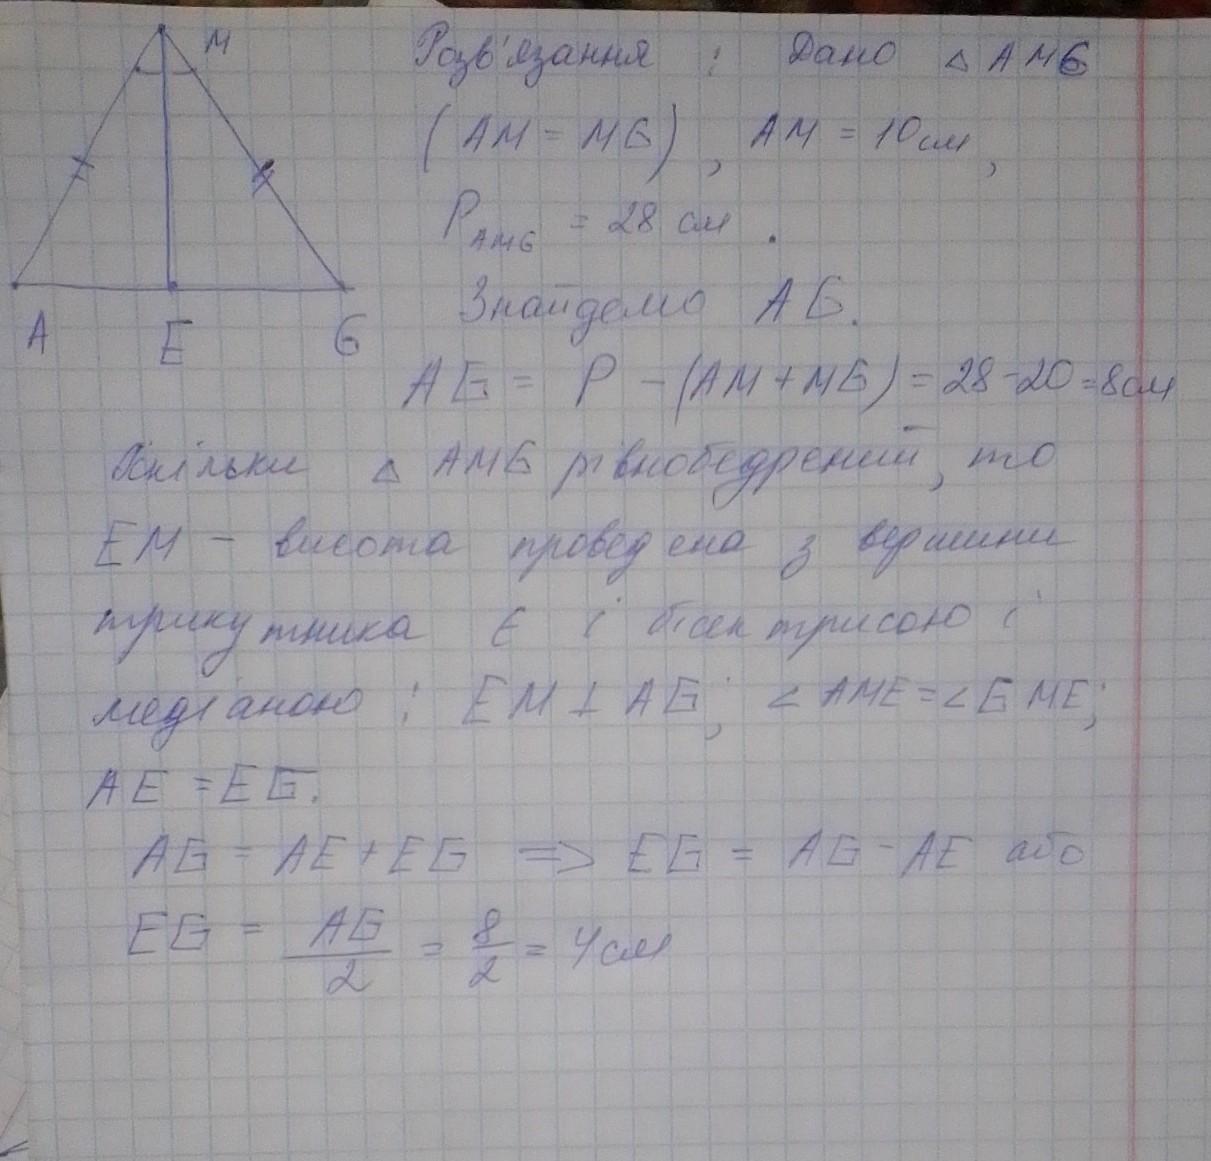 М
А
Е
G
Розв'язання : Дано △ AMG
(AM = MG), AM = 10 см,
P AMG = 28 см.
Знайдемо AG.
AG = P - (AM + MG) = 28 - 20 = 8 см
Оскільки △ AMG рівнобедрений, то
EM - висота проведена з вершини
трикутника є і бісектрисою і
медіаною : EM ⊥ AG; ∠ AME = ∠ GME;
AE = EG.
AG = AE + EG => EG = AG - AE або
EG = AG/2 = 8/2 = 4 см